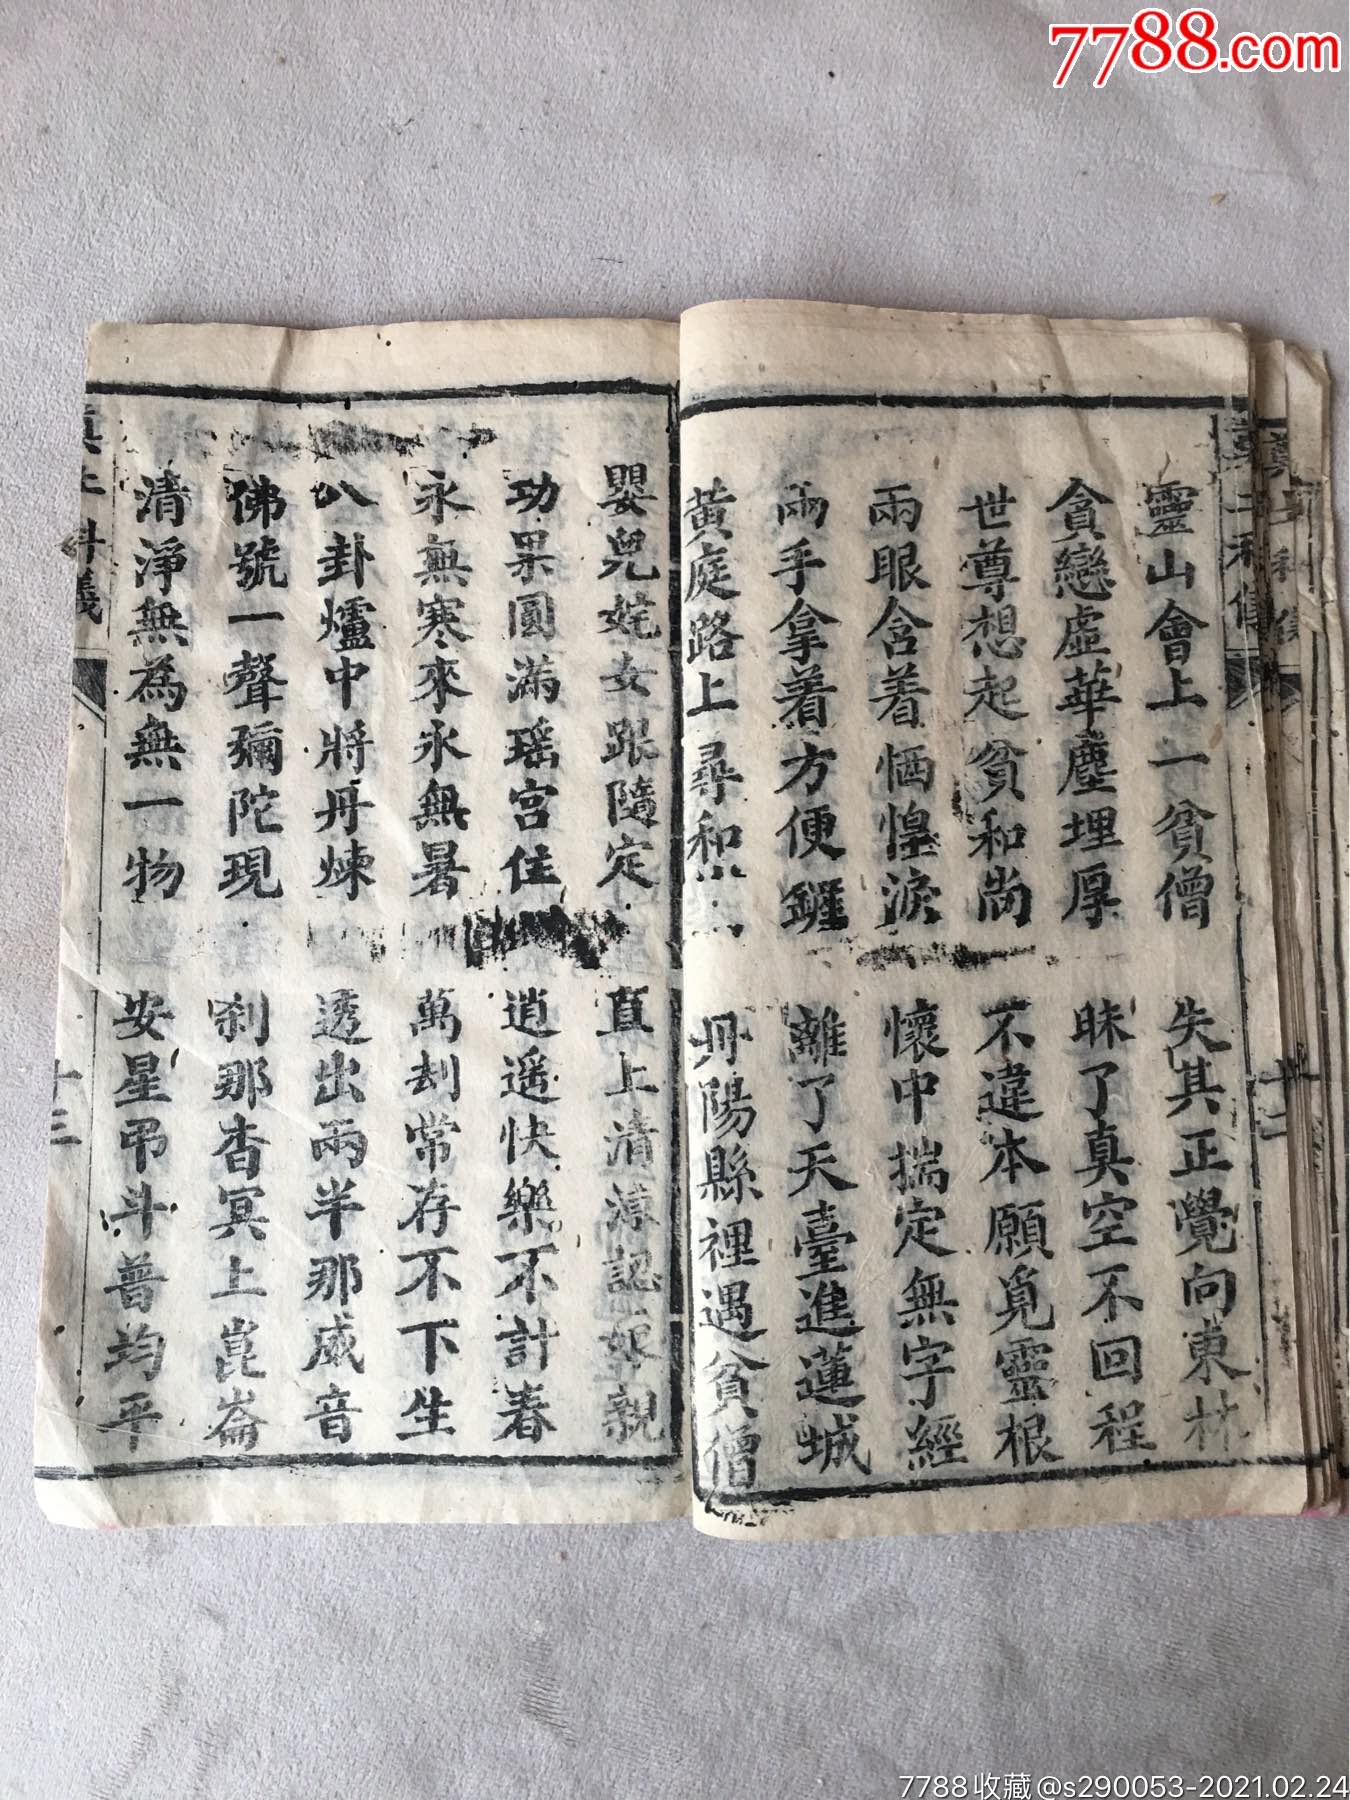 7788.com
靈山會上一貧僧 失其正覺向東林
貪戀虛華塵埋厚 昧了真空不回程
世尊想起貧和尚 不違本願覓靈根
兩眼含着恓惶淚 懷中揣定無字經
兩手拿着方便鏟 離了天臺進蓮城
黃庭路上尋和尚 丹陽縣裡遇貧僧
嬰兒姹女跟隨定 直上清涼認娘親
功果圓滿瑤宮住 逍遥快樂不計春
永無寒來永無暑 萬刦常存不下生
八卦爐中將丹煉 透出兩半那威音
佛號一聲彌陀現 刹那杳冥上崑崙
清淨無為無一物 安星吊斗普均平
科儀
十三
7788收藏@s290053-2021.02.24